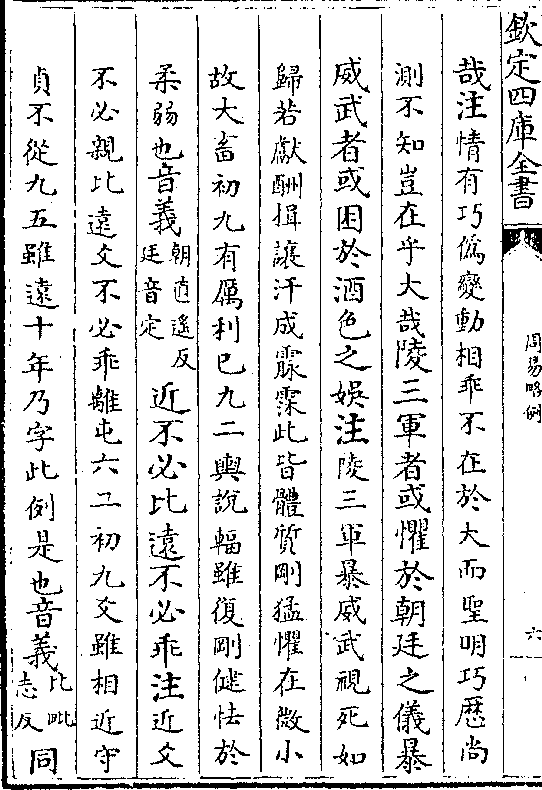 欽定四庫全書
周易略例
六
哉注情有巧偽變動相乖不在於大而聖明巧歷尚
測不知豈在乎大哉陵三軍者或懼於朝廷之儀暴
威武者或困於酒色之娛注陵三軍暴威武視死如
歸若獻酬揖讓汗成霢霂此皆體質剛猛懼在微小
故大畜初九有厲利已九二輿說輻雖復剛健怯於
柔弱也音義朝直遙反廷音定近不必比遠不必乖注近爻
不必親比遠爻不必乖離屯六二初九爻雖相近守
貞不從九五雖遠十年乃字此例是也音義比毗志反同